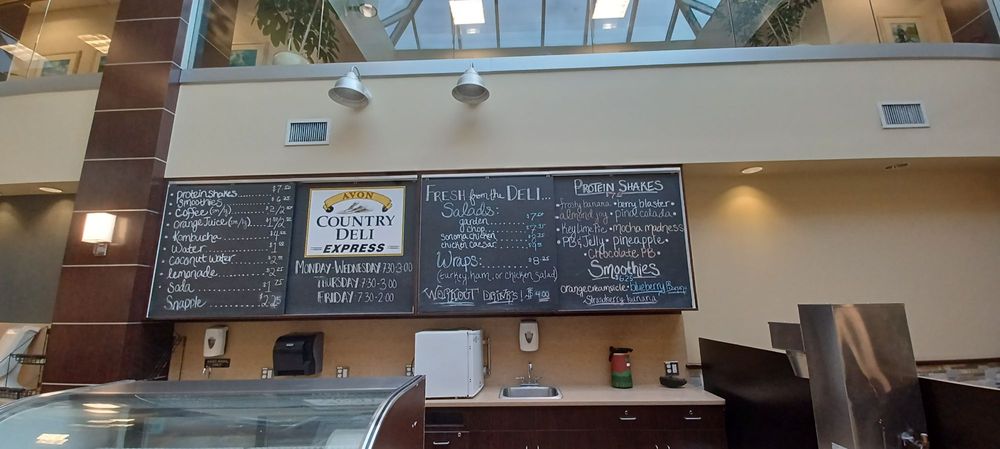 Protein shakes........ $7.
Smoothies......... $6.25
Coffee (sm/lg)........ $2/2
Orange Juice (sm/lg)....
Kombucha........ $4
Water............ $1
Coconut water........ $2
Lemonade............ $2
Soda............ $1
Snapple............ $2.25
AVON
COUNTRY
DELI
EXPRESS
MONDAY-WEDNESDAY 7:30-3:00
THURSDAY 7:30-3:00
FRIDAY 7:30-2:00
FRESH from the DELI...
Salads:
garden
chop
sonoma chicken
chicken caesar
Wraps:........ $8.
(turkey, ham, or chicken salad)
WORKOUT DRINKS! $4.00
PROTEIN SHAKES
frosty banana • berry blaster
almond joy • pina colada
Key lime Pie • mocha madness
PB & Jelly • pineapple
Chocolate PB
Smoothies
orange creamsicle • blueberry
strawberry banana